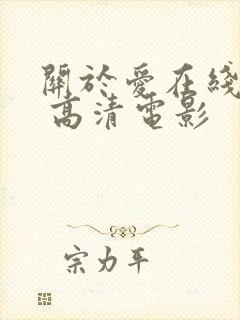 關於愛在綫
高清電影
宗力平